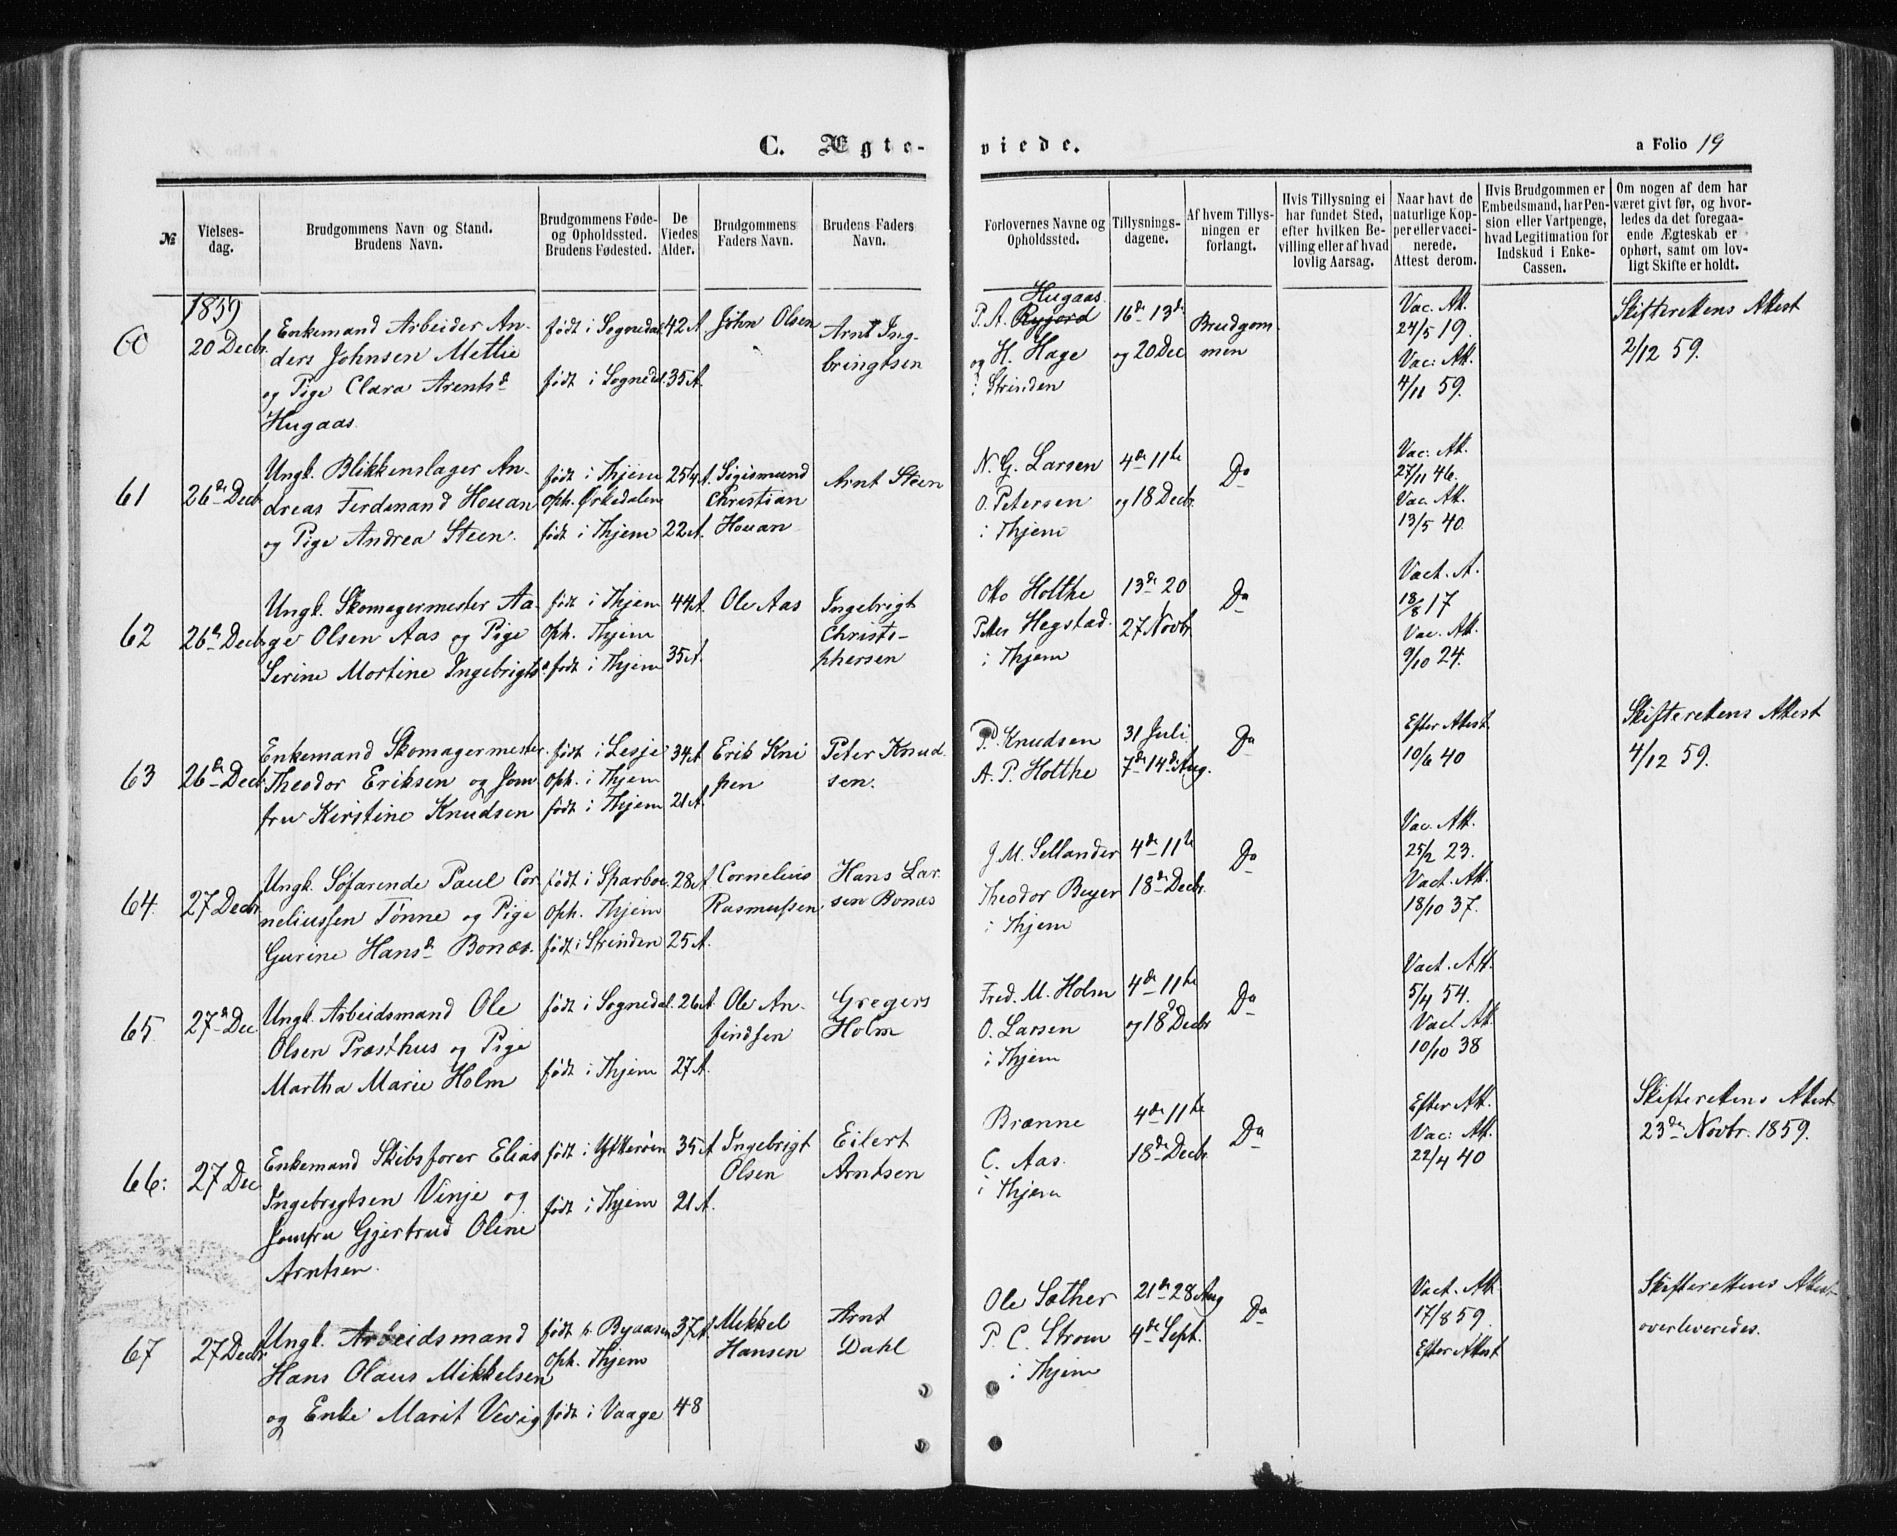 C. Ægte-
viede.
a Folio 19
№
Vielses-
dag.
Brudgommens Navn og Stand.
Brudens Navn.
Brudgommens Føde-
og Opholdssted.
Brudens Fødested.
De
Viedes
Alder.
Brudgommens
Faders Navn.
Brudens Faders
Navn.
Forlovernes Navne og
Opholdssted.
Tillysnings-
dagene.
Af hvem Tillys-
ningen er
forlangt.
Hvis Tillysning ei
har fundet Sted,
efter hvilken Be-
villing eller af hvad
lovlig Aarsag.
Naar havt de
naturlige Kop-
per eller vacci-
nerede.
Attest derom.
Hvis Brudgommen er
Embedsmand, har Pen-
sion eller Vartpenge,
hvad Legitimation for
Indskud i Enke-
Cassen.
Om nogen af dem har
været givt før, og hvor-
ledes da det foregaa-
ende Ægteskab er
ophørt, samt om lov-
ligt Skifte er holdt.
1859
60
20 Decbr.
Enkemand Arbeider An-
ders Johnsen Mettie
og Pige Clara Arentsd
Hugaas
født i Sognedal
født i Sognedal
42 A.
35 A.
John Olsen
Arnt Ing-
bringtsen
Hugaas
P. A. Ryjord
og H. Hage
i Strinden
16de 13de
og 20 Dec
Brudgom
men
Vac. Att.
24/5 19.
Vac: Att.
4/11 59.
Skifterettens Attest
2/12 59.
61
26de Decbr
Ungk. Blikkenslager An-
dreas Ferdinand Houan
og Pige Andrea Steen.
født i Thjem
Oph. Ørkedalen
født i Thjem
25 A.
22 A.
Sigismund
Christian
Houan
Arnt Steen
N. G. Larsen
O. Petersen
i Thjem
4de 11te
og 18 Decbr.
Do
Vac: Att.
27/11 46.
Vac. Att.
13/5 40.
62
26de Decbr
Ungk. Skomagermester Aa-
ge Olsen Aas og Pige
Serine Mortine Ingebrigtsd
født i Thjem
Oph. Thjem
født i Thjem
44 A.
35 A.
Ole Aas
Ingebrigt
Christo-
phersen
Otto Holthe
Peter Hegstad
i Thjem
13de 20
27 Novbr
Do
Vact. A.
18/8 17
Vac. Att.
9/10 24.
63
26de Decbr
Enkemand Skomagermester
Theodor Eriksen og Jom
fru Kirstine Knudsen
født i Lesje
Oph. i Thjem
født i Thjem
34 A
21 A.
Erik Kni
pen
Peter Knud
sen.
P. Knudsen
A. P. Holthe
31 Juli
7de 14de Aug.
Do
Efter Attest
10/6 40
Skifterettens Attest
4/12 59.
64.
27 Decbr
Ungk. Søfarende Paul Cor
neliussen Tønne og Pige
Gurine Hansd Bonæs.
født i Sparboe
Oph. Thjem
født i Strinden
28 A.
25 A.
Cornelius
Rasmussen
Hans Lar
sen Bonæs
J. M. Sellander
Theodor Beyer
i Thjem
4de 11te
18de Decbr.
Do
Vac. Att.
25/2 23.
Vact. Att.
18/10 37.
65.
27de Dec
Ungk. Arbeidsmand Ole
Olsen Præsthus og Pige
Martha Marie Holm
født i Sognedal.
født i Thjem
26 A.
27 A.
Ole An-
findsen
Gregers
Holm
Fred. M. Holm
O. Larsen
i Thjem
4de 11te
og 18 Decbr
Do
Vact. Att.
5/4 54.
Vact. Att.
10/10 38
66:
27 Dec
Enkemand Skibsfører Elias
Ingebrigtsen Vinje og
Jomfru Gjertrud Oline
Arntsen.
født i Ytterøen
født i Thjem
35 A
21 A.
Ingebrigt
Olsen
Eilert
Arntsen
Brænne
C. Aas.
i Thjem
4de 11te
18de Decbr
Do
Efter Att.
Vac: Att.
22/4 40
Skifterettens Attest
23de Novbr. 1859.
67
27 Decbr
Ungk. Arbeidsmand
Hans Olaus Mikkelsen
og Enke Marit Vevig
født p. Byaasen
Oph. Thjem
født i Vaage
37 A.
48
Mikkel
Hansen
Arnt
Dahl
Ole Sæther
P. C. Strøm
i Thjem
21de 28 Aug
4de Sept.
Do
Vact. Att.
17/8 59.
Efter Attest
Skifterettens Attest
overleveredes.